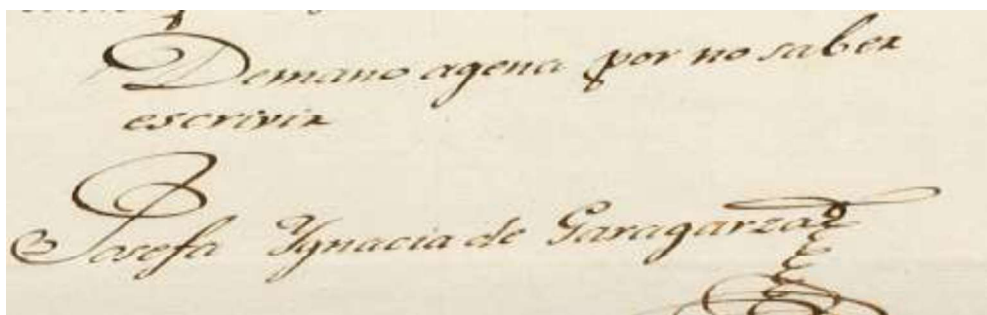 Demano agena por no saber
escrivir
Josefa Ygnacia de Garagarza